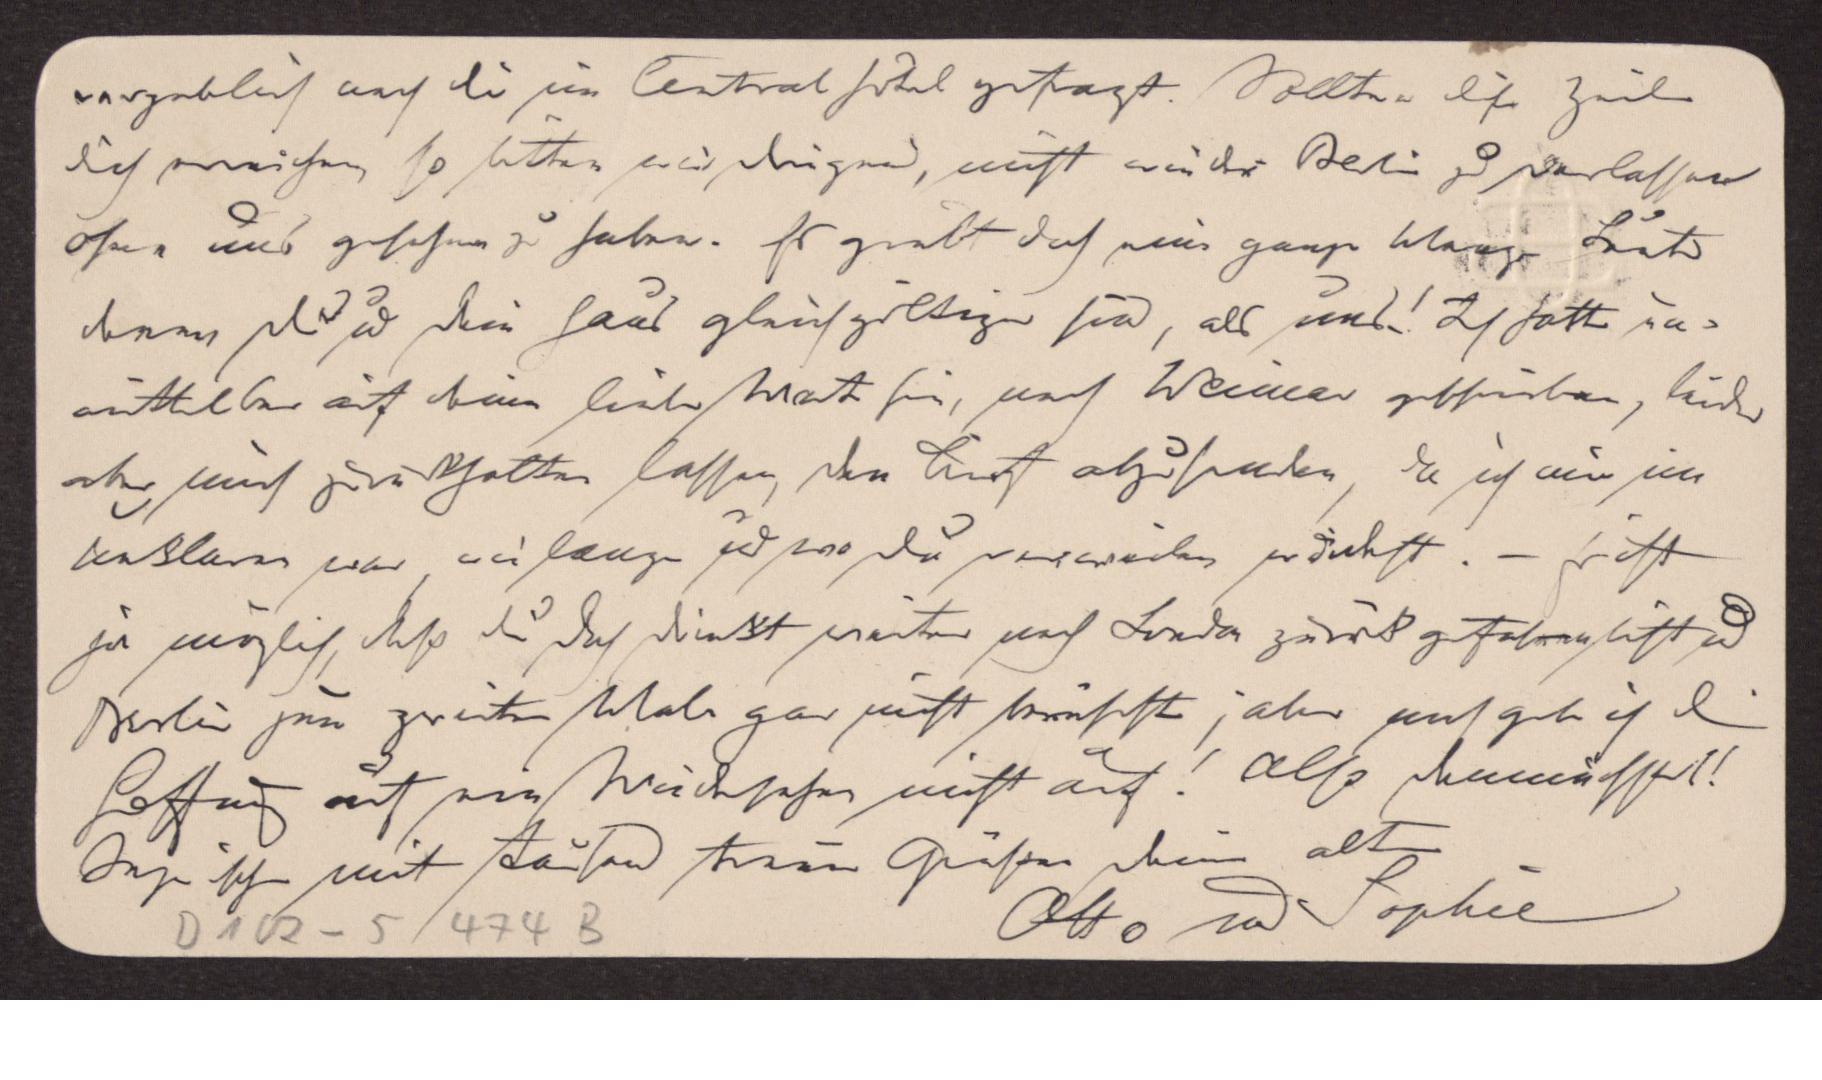 vergeblich nach dir im Central Hôtel gefragt. Sollten diese Zeilen
dich erreichen, so bitten wir dringend, nicht wieder Berlin zu verlassen
ohne uns gesehen zu haben. Es giebt doch eine ganze Menge Leute
denen Du u Dein Haus gleichgültiger sind, als uns! Ich hatte un-
mittelbar auf deine liebe Karte hin, nach Weimar geschrieben, leider
aber mich zurückhalten lassen, den Brief abzusenden, da ich mir im
unklaren war, wie lange und wo du verweilen würdest. – Es ist
ja möglich, daß du doch direkt weiter nach London zurück gefahren bist und
Berlin zum zweiten Male gar nicht berührst; aber noch gebe ich die
Hoffnung auf ein Wiedersehen nicht auf! Also demnächst!!
mit tausend treuen Grüßen deine alten
Otto und Sophie
D 102 – 5 474 B